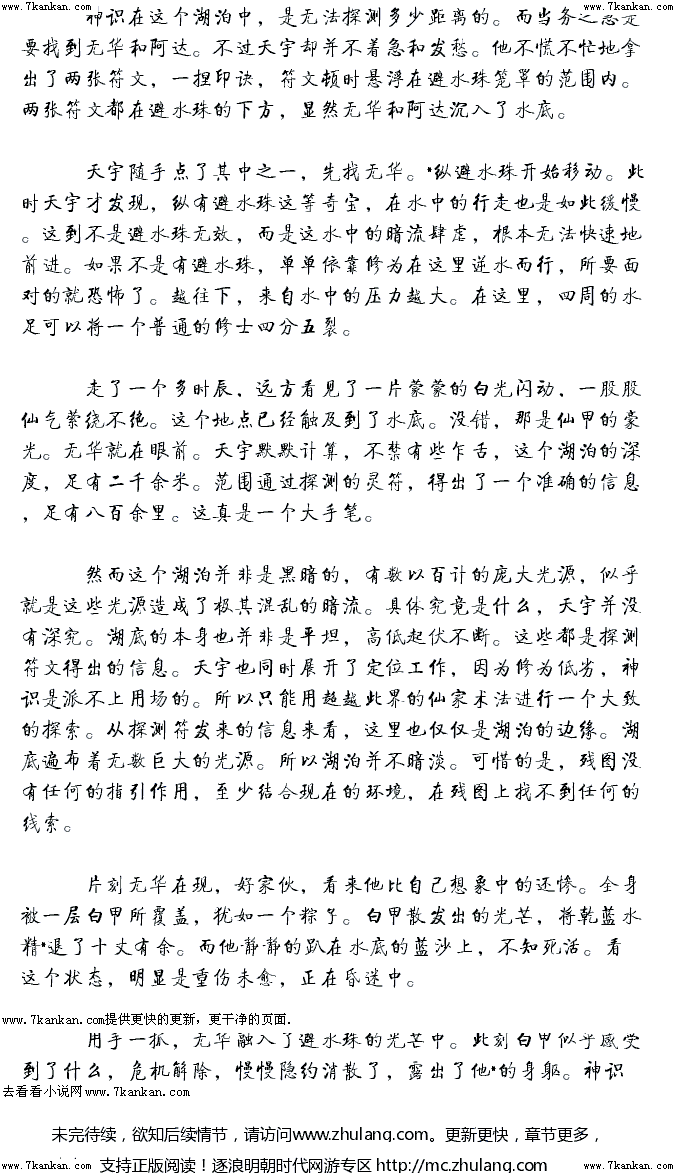 www.7kankan.com www.7kankan.com www.7kankan.com www.7kankan.com www.7kankan.com
神识在这个湖泊中，是无法探测多少距离的。而当务之急是
要找到无华和阿达。不过天宇却并不着急和发愁。他不慌不忙地拿
出了两张符文，一捏印诀，符文顿时悬浮在避水珠笼罩的范围内。
两张符文都在避水珠的下方，显然无华和阿达沉入了水底。
天宇随手点了其中之一，先找无华。*纵避水珠开始移动。此
时天宇才发现，纵有避水珠这等奇宝，在水中的行走也是如此缓慢
。这到不是避水珠无效，而是这水中的暗流肆虐，根本无法快速地
前进。如果不是有避水珠，单单依靠修为在这里逆水而行，所要面
对的就恐怖了。越往下，来自水中的压力越大。在这里，四周的水
足可以将一个普通的修士四分五裂。
走了一个多时辰，远方看见了一片蒙蒙的白光闪动，一股股
仙气萦绕不绝。这个地点已经触及到了水底。没错，那是仙甲的豪
光。无华就在眼前。天宇默默计算，不禁有些乍舌，这个湖泊的深
度，足有二千余米。范围通过探测的灵符，得出了一个准确的信息
，足有八百余里。这真是一个大手笔。
然而这个湖泊并非是黑暗的，有数以百计的庞大光源，似乎
就是这些光源造成了极其混乱的暗流。具体究竟是什么，天宇并没
有深究。湖底的本身也并非是平坦，高低起伏不断。这些都是探测
符文得出的信息。天宇也同时展开了定位工作，因为修为低劣，神
识是派不上用场的。所以只能用超越此界的仙家术法进行一个大致
的探索。从探测符发来的信息来看，这里也仅仅是湖泊的边缘。湖
底遍布着无数巨大的光源。所以湖泊并不暗淡。可惜的是，残图没
有任何的指引作用，至少结合现在的环境，在残图上找不到任何的
线索。
片刻无华在现，好家伙，看来他比自己想象中的还惨。全身
被一层白甲所覆盖，犹如一个粽子。白甲散发出的光芒，将乾蓝水
精*退了十丈有余。而他静静的趴在水底的蓝沙上，不知死活。看
这个状态，明显是重伤未愈，正在昏迷中。
www.7kankan.com提供更快的更新，更干净的页面.
用手一抓，无华融入了避水珠的光芒中。此刻白甲似乎感受
到了什么，危机解除，慢慢隐约消散了，露出了他*的身躯。神识
去看看小说网www.7kankan.com
未完待续，欲知后续情节，请访问www.zhulang.com。更新更快，章节更多，
支持正版阅读！逐浪明朝时代网游专区 http://mc.zhulang.com
www.7kankan.com www.7kankan.com